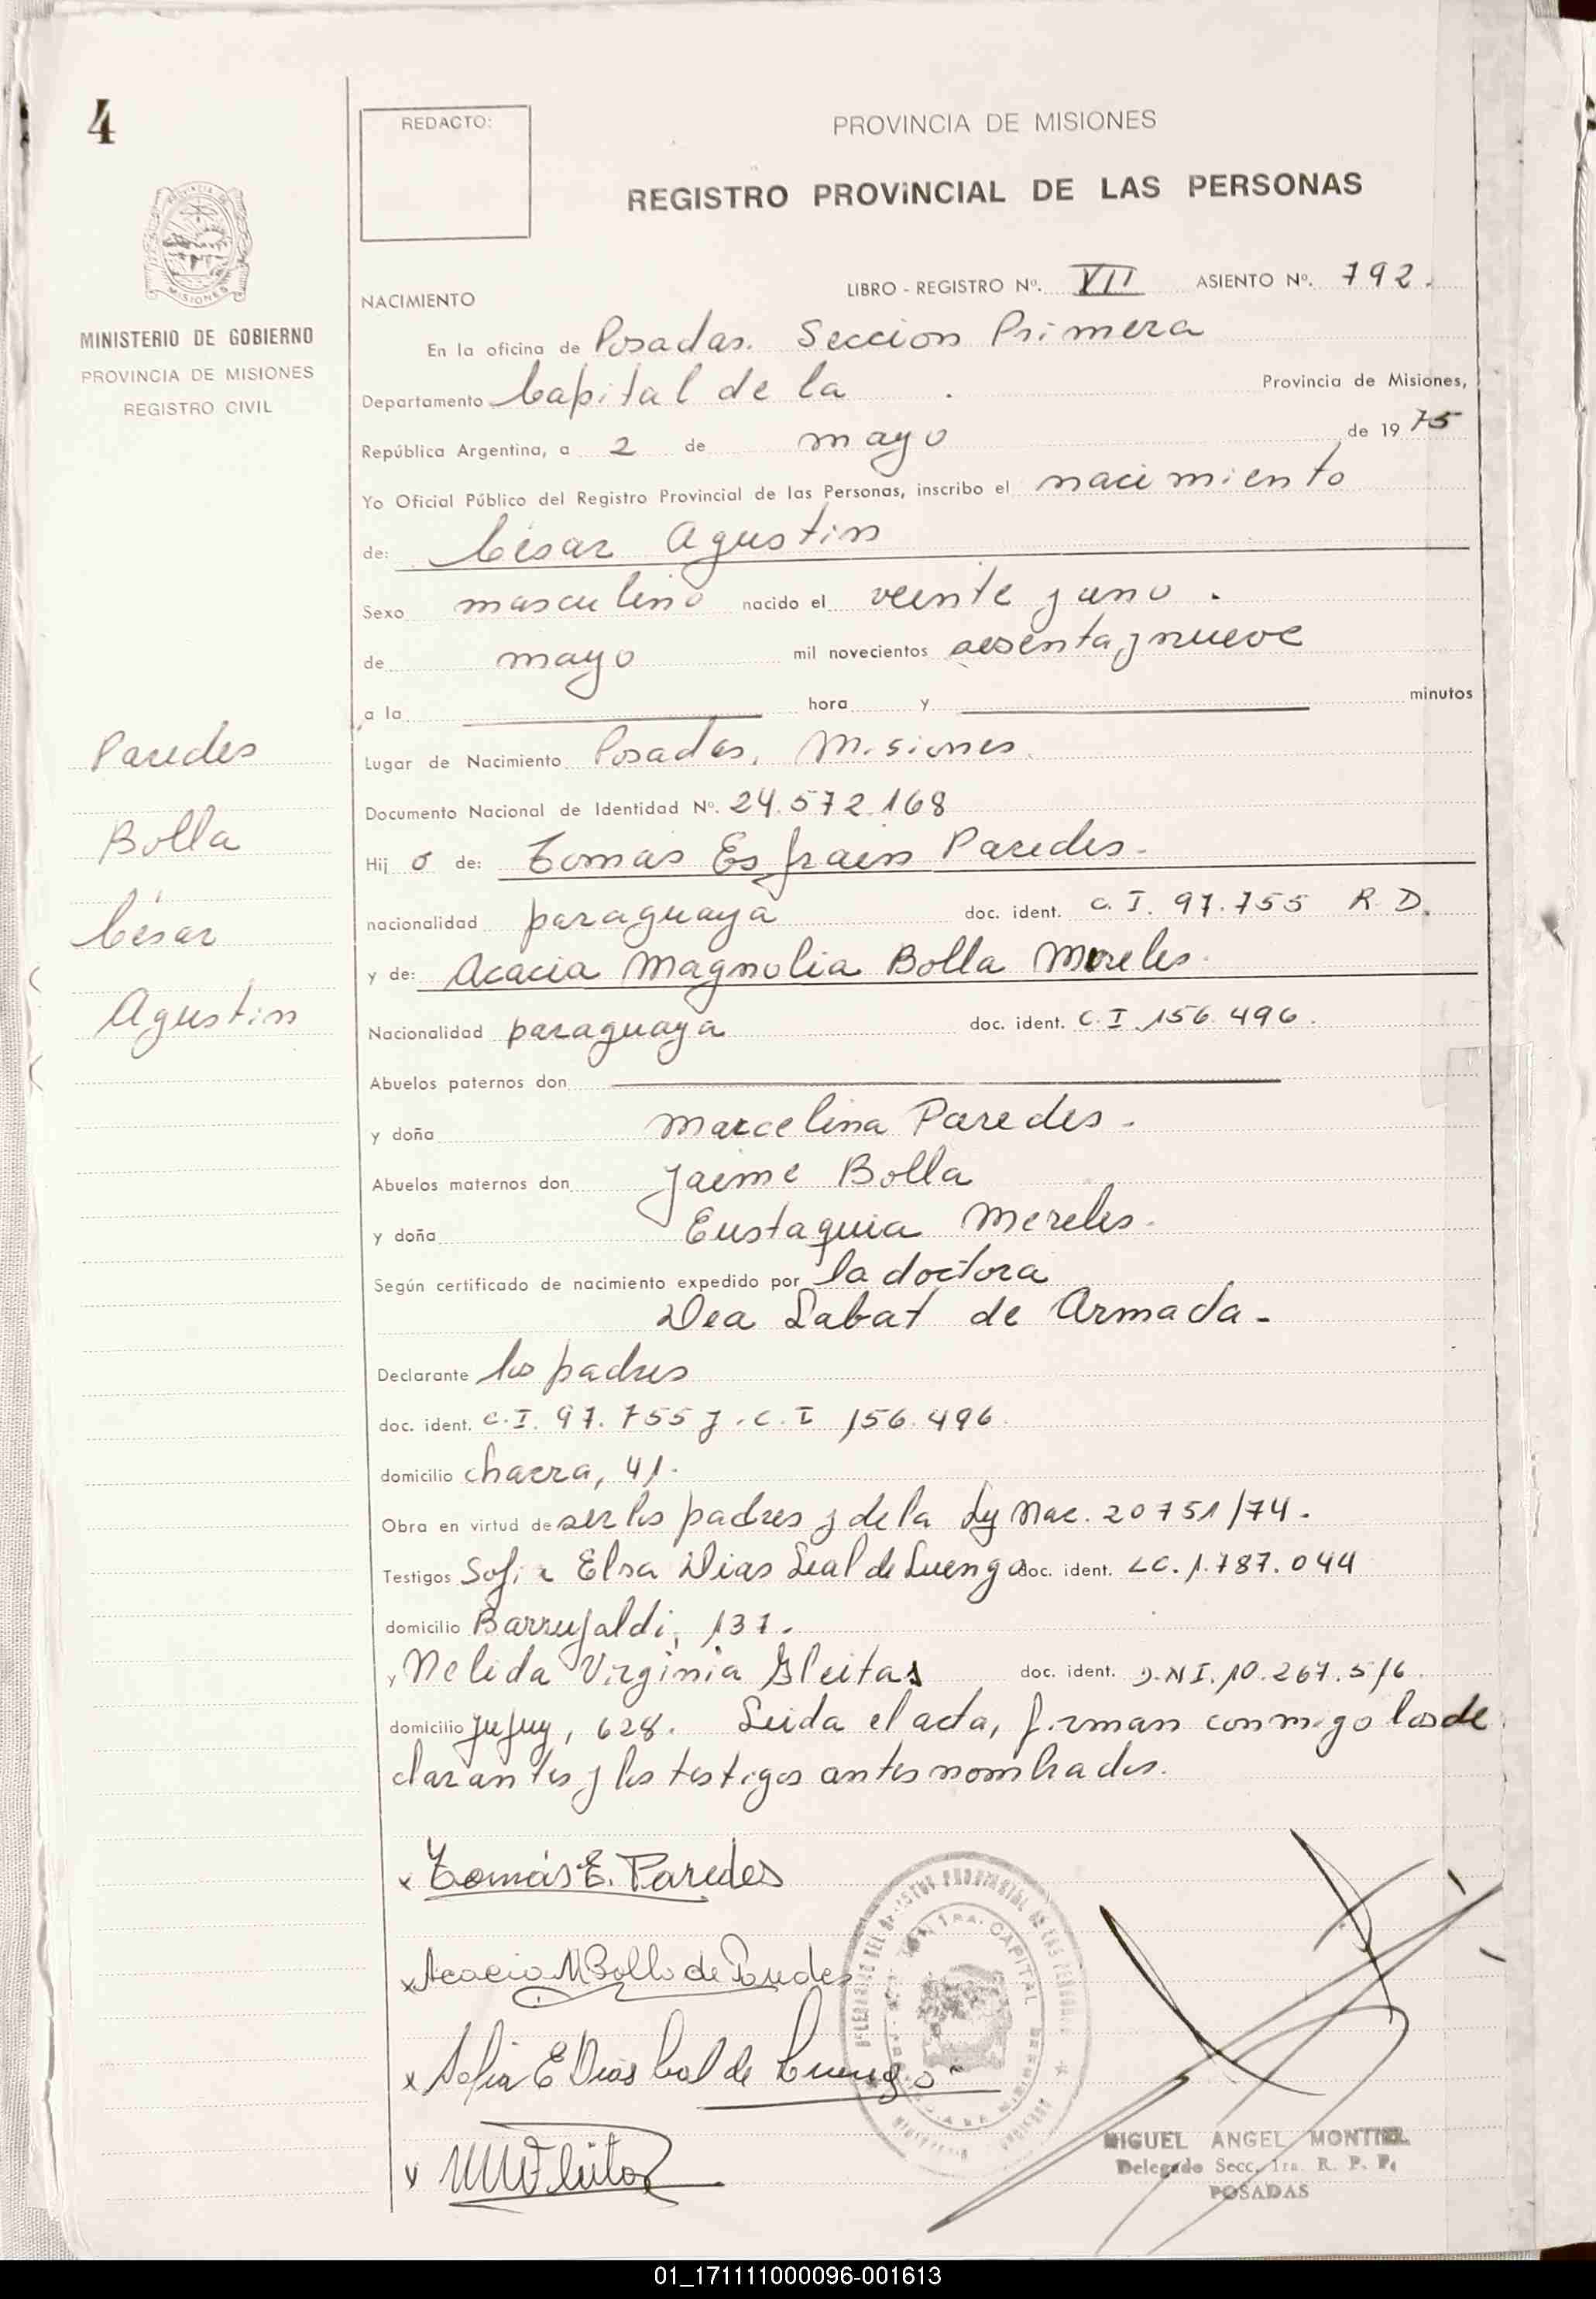 4
REDACTO:
PROVINCIA DE MISIONES
REGISTRO PROVINCIAL DE LAS PERSONAS
MISIONES
MINISTERIO DE GOBIERNO
PROVINCIA DE MISIONES
REGISTRO CIVIL
LIBRO - REGISTRO Nº. VII ASIENTO Nº. 792.
NACIMIENTO
En la oficina de Posadas. Seccion Primera
Departamento Capital de la . Provincia de Misiones,
República Argentina, a 2 de mayo de 1975
Yo Oficial Público del Registro Provincial de las Personas, inscribo el nacimiento
de: César Agustin
Sexo masculino nacido el veinte y uno .
de mayo mil novecientos sesenta y nueve
a la hora y minutos
Lugar de Nacimiento Posadas, Misiones.
Documento Nacional de Identidad Nº. 24.572.168
Hij o de: Tomas Esfrain Paredes.
nacionalidad paraguaya doc. ident. C. I. 97.755 R. D.
y de: Acacia Magnolia Bolla Mereles.
Nacionalidad paraguaya doc. ident. C. I. 156.496.
Paredes
Bolla
César
Agustin
Abuelos paternos don
y doña Marcelina Paredes.
Abuelos maternos don Jaime Bolla
y doña Eustaquia Mereles.
Según certificado de nacimiento expedido por la doctora
Dea Labat de Armada.
Declarante los padres
doc. ident. C.I. 97.755 y . C. I 156.496.
domicilio chacra, 41.
Obra en virtud de ser los padres y de la Ley Nac. 20751/74.
Testigos Sofia Elsa Dias Leal de Luengo doc. ident. LC. 1.787.044
domicilio Barrufaldi, 137.
y Nelida Virginia Fleitas doc. ident. D.N.I. 10.267.516.
domicilio Jujuy, 628. Leida el acta, firman conmigo los de
clarantes y los testigos antes nombrados.
x Tomás E. Paredes
x Acacia M Bolla de Paredes
x Sofia E Dias Leal de Luengo
MIGUEL ANGEL MONTIEL
Delegado Secc. 1ra. R. P. P.
POSADAS
01_171111000096-001613